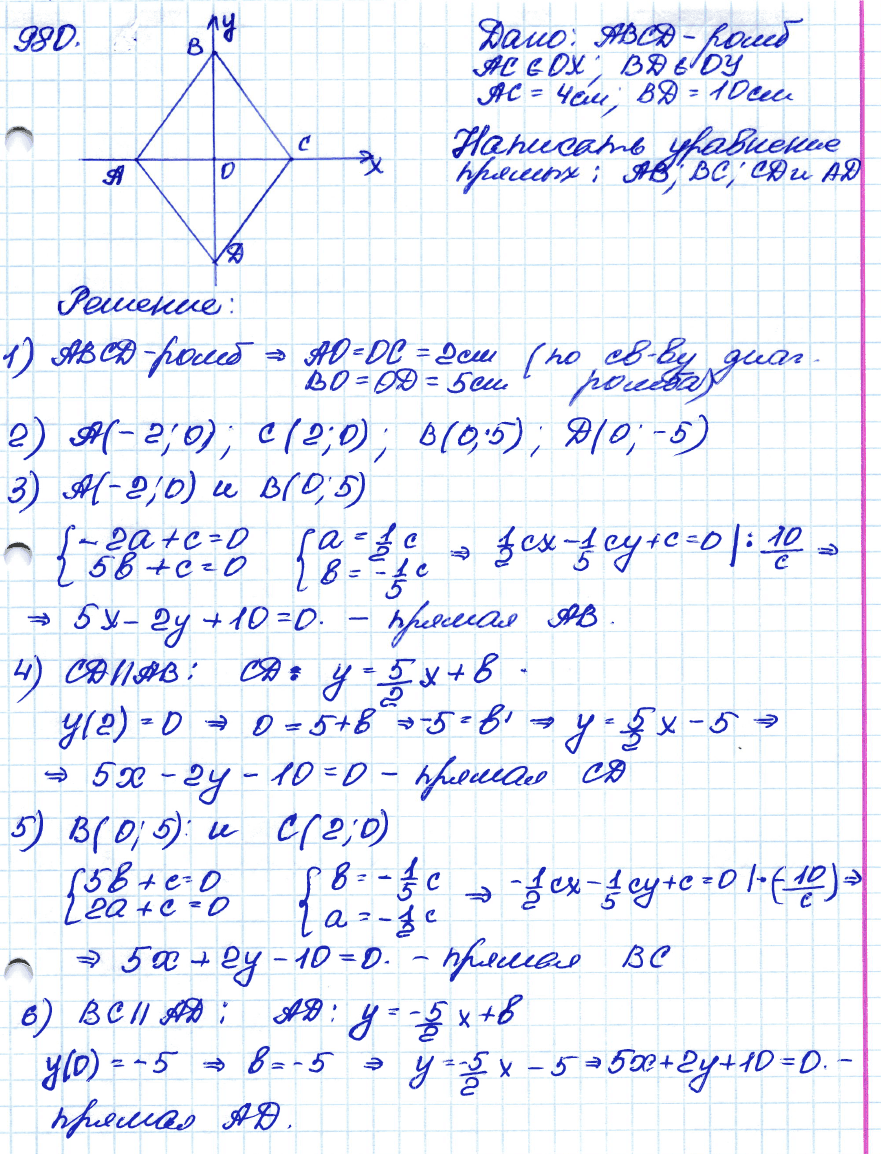 980.
y
B
C
A
O
x
D
Дано: ABCD - ромб
AC ∈ OX; BD ∈ OY
AC = 4см; BD = 10см
Написать уравнение
прямых: AB; BC; CD и AD
Решение:
1) ABCD - ромб ⇒ AO = OC = 2см (по св-ву диаг.
BO = OD = 5см ромба)
2) A(-2; 0); C(2; 0); B(0; 5); D(0; -5)
3) A(-2; 0) и B(0; 5)
{-2a + c = 0 {a = 1/2 c ⇒ 1/2 cx - 1/5 cy + c = 0 |: 10/c ⇒
{5b + c = 0 {b = -1/5 c
⇒ 5x - 2y + 10 = 0. - прямая AB.
4) CD || AB: CD: y = 5/2 x + b
y(2) = 0 ⇒ 0 = 5 + b ⇒ -5 = b ⇒ y = 5/2 x - 5 ⇒
⇒ 5x - 2y - 10 = 0 - прямая CD
5) B(0; 5) и C(2; 0)
{5b + c = 0 {b = -1/5 c ⇒ -1/2 cx - 1/5 cy + c = 0 |·(-10/c) ⇒
{2a + c = 0 {a = -1/2 c
⇒ 5x + 2y - 10 = 0. - прямая BC
6) BC || AD: AD: y = -5/2 x + b
y(0) = -5 ⇒ b = -5 ⇒ y = -5/2 x - 5 ⇒ 5x + 2y + 10 = 0. -
прямая AD.